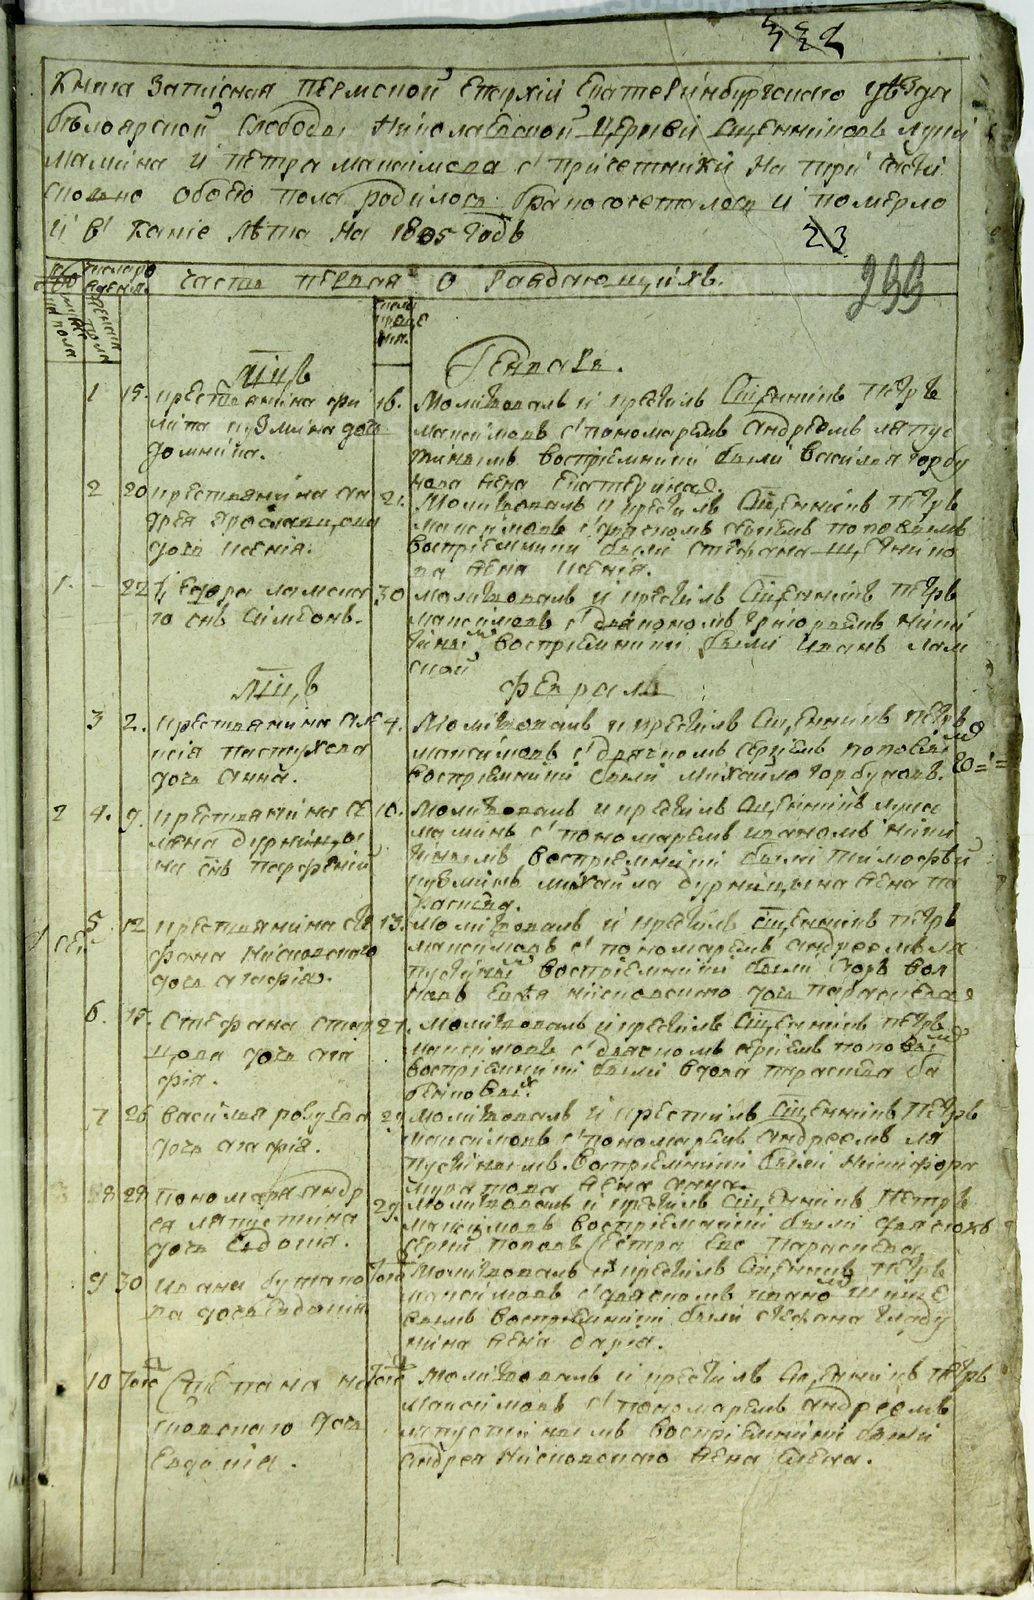 332
Книга Записная Пермской Епархіи Екатеринбургскаго уѣзда
бѣлоярской слободы Николаевской Церкви Священниковъ Луки
Мамина и Петра Максимова с причетники На три части
сколько обоего пола родилось бракосочеталось и померло
и в Какіе Лѣта На 1805 Годъ
23
233
Часть первая О Раждающихся.
Мцъ
Генварь.
1 15. крестьянина фи
липа кузмина дочь
Домника.
16. Молитвовалъ и крестилъ Священникъ Петръ
Максимовъ с пономаремъ Андреемъ Лапус
тинымъ воспріемники были василья горбу
нова жена Екатерина.
2 20 крестьянина
дочь Ксенія.
21. Молитвовалъ и крестилъ Священникъ Петръ
Максимовъ с дьячкомъ Сергіемъ поповымъ
воспріемники были стефана
ва жена Ксенія.
1. 22 Егора ламска
го снъ Симеонъ.
30 молитвовалъ и крестилъ Священникъ Петръ
Максимовъ с дьякономъ григорьемъ Ники
тинымъ воспріемники были Иванъ лам
ской
Мцъ
Февраль
3 2. крестьянина Але
ксія пастухова
дочь Анна.
4. Молитвовалъ и крестилъ Священникъ Петръ
Максимовъ с дьячкомъ Сергіемъ поповымъ
воспріемники были Михайло горбуновъ.
2 4. 9. крестьянина Се
мена бурницы
на снъ Парфеній
10. Молитвовалъ и крестилъ Священникъ Лука
Маминъ с пономаремъ иваномъ ники
тинымъ воспріемники были Тимофѣй
кузминъ михайла бурницына жена па
5 12 крестьянина Сте
фана Кисловскаго
дочь агафія.
13. Молитвовалъ и крестилъ Священникъ Петръ
Максимовъ с пономаремъ андреемъ ла
пустинымъ воспріемники были Егоръ вол
ковъ кисловскаго дочь параскева
6. 15. Стефана Стар
цова дочь ага
фія.
21. Молитвовалъ и крестилъ Священникъ Петръ
Максимовъ с дьячкомъ сергіемъ поповымъ
воспріемники были вдова параскева ба
7 26 василья
дочь агафія.
Молитвовалъ и крестилъ Священникъ Петръ
Максимовъ с пономаремъ андреемъ ла
пустинымъ. воспріемники были Никифора
муратова жена анна.
28 пономаря андр
ея лапустина
дочь Евдокія.
29. Молитвовалъ и крестилъ Священникъ Петръ
Максимовъ воспріемники были дьячокъ
Сергій поповъ сестра Его Параскева
9 30 Ивана
ва дочь Евдокія
того Молитвовалъ и крестилъ Священникъ Петръ
Максимовъ с дьячкомъ иваномъ
вымъ воспріемники были стефана
кина жена дарья.
10 того Степана ки
словскаго дочь
Евдокія.
того Молитвовалъ и крестилъ Священникъ Петръ
Максимовъ с пономаремъ андреемъ
лапустинымъ воспріемники были
андрея Кисловскаго жена Елена.